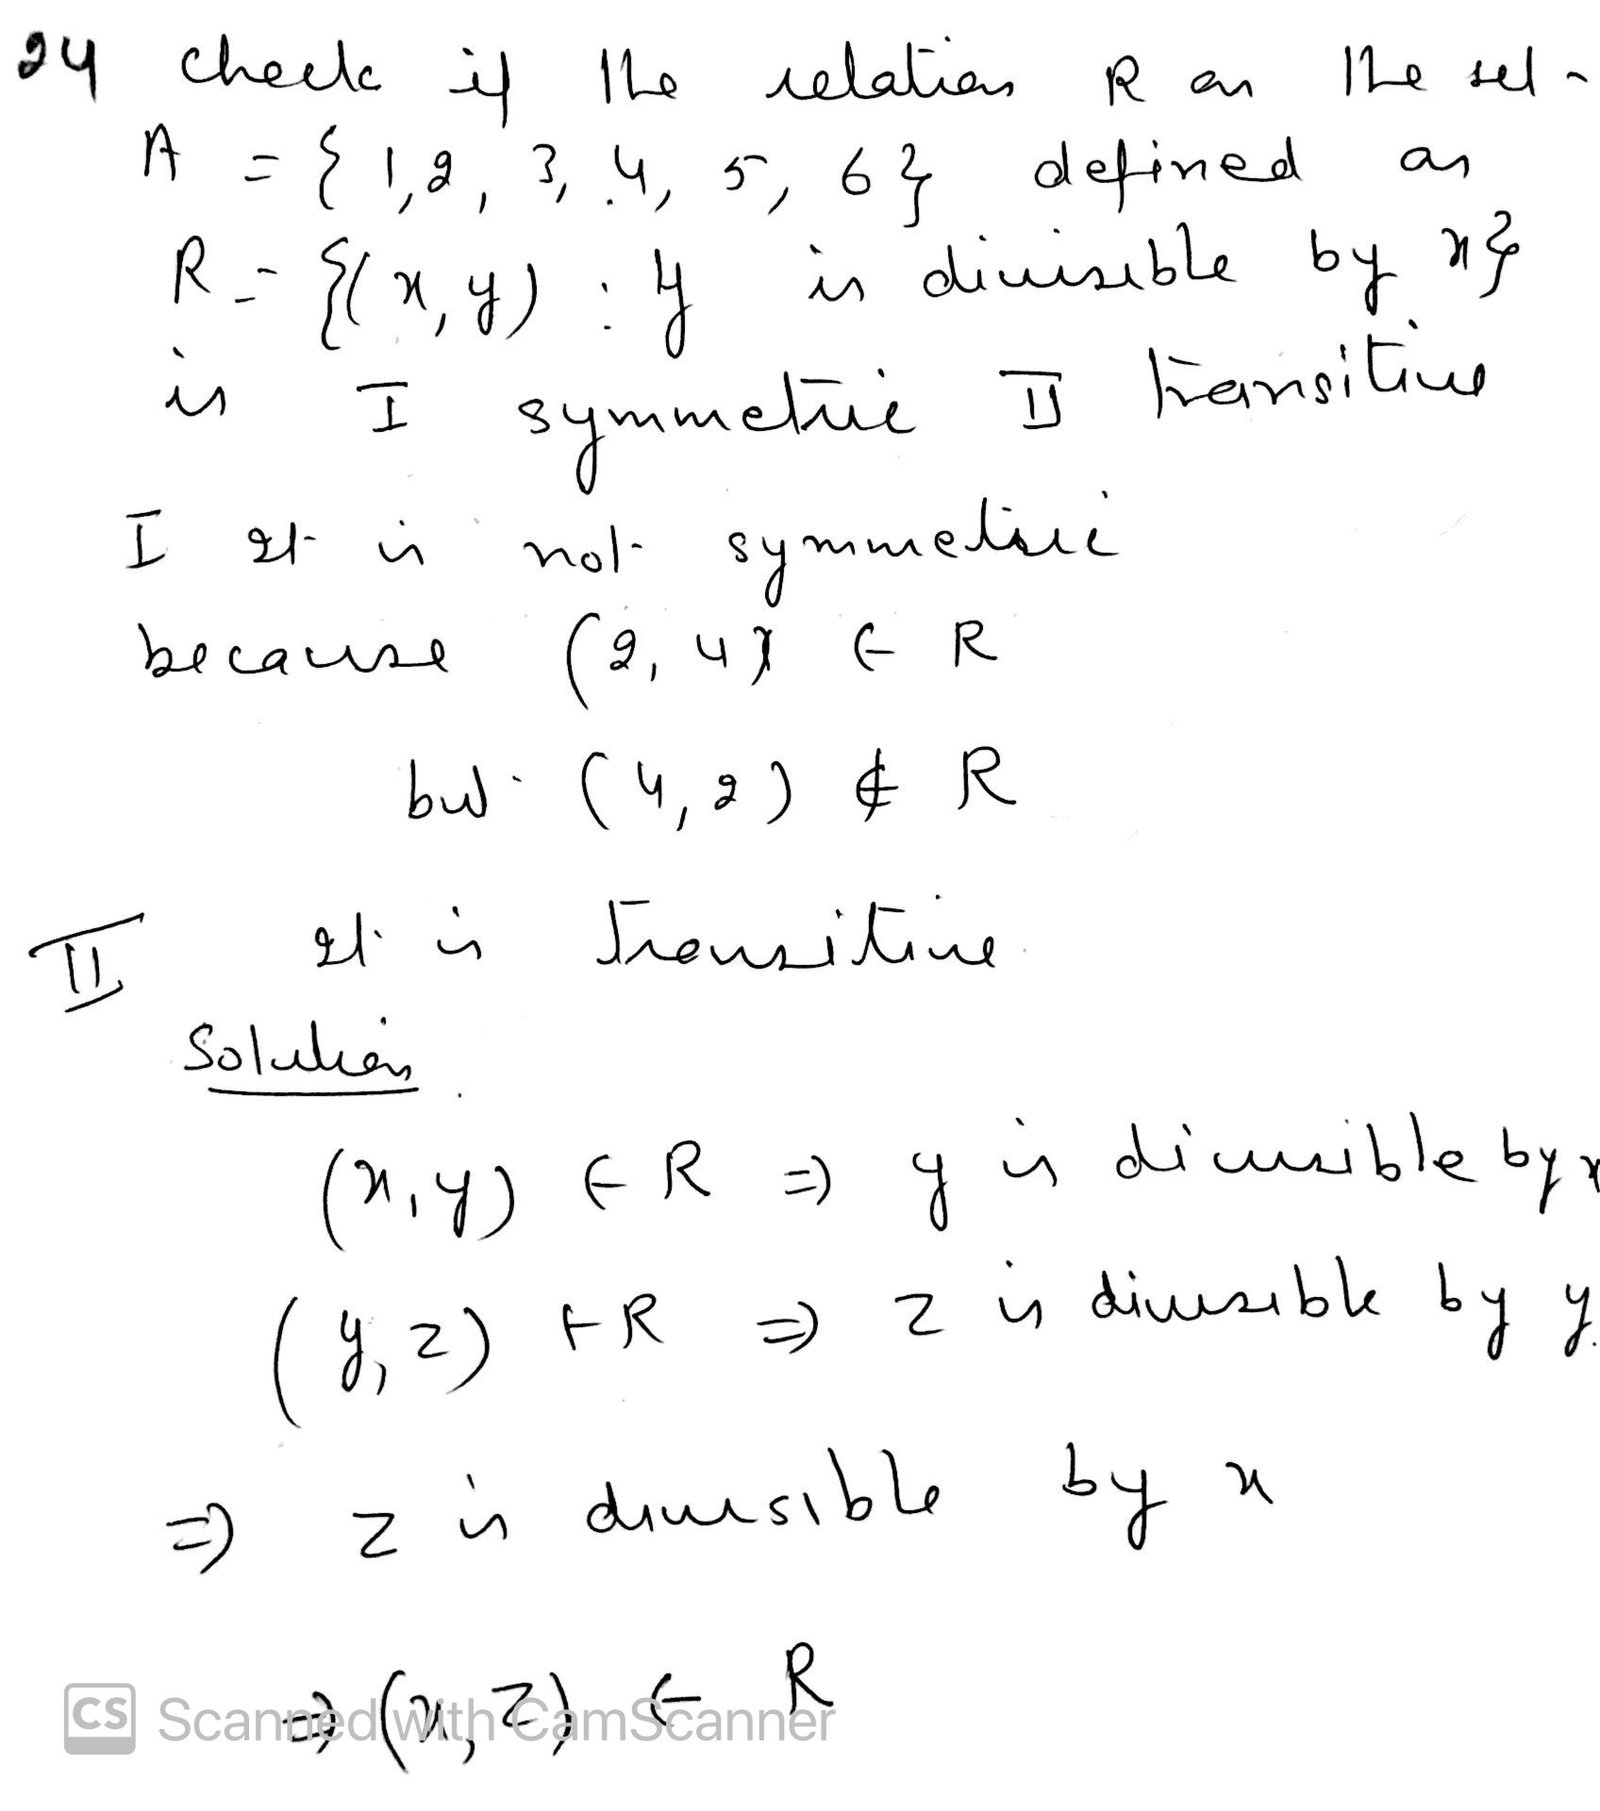 24 check if the relation R on the set
A = { 1, 2, 3, 4, 5, 6 } defined as
R = {( x, y ) : y is divisible by x}
is I symmetric II transitive
I It is not symmetric
because ( 2, 4 ) ∈ R
but ( 4, 2 ) ∉ R
II It is Transitive
Solution
(x, y) ∈ R ⇒ y is divisible by x
( y, z) ∈ R ⇒ z is divisible by y.
⇒ z is divisible by x
⇒ (x, z) ∈ R
CS Scanned with CamScanner